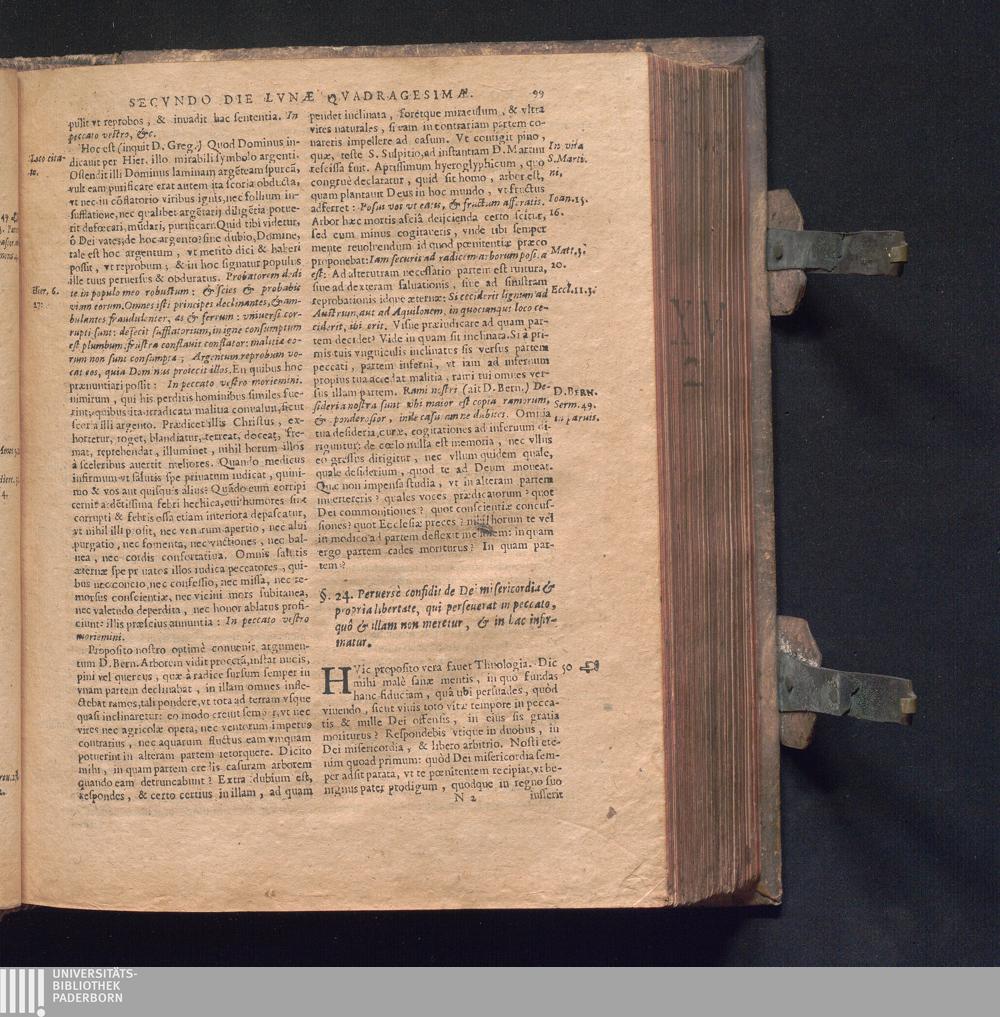 SECVNDO DIE LVNÆ QVADRAGESIMÆ.
99
pulit vt reprobos, & inuadit hac sententia. In
peccato vestro, &c.
Hoc est (inquit D. Greg.) Quod Dominus in-
dicauit per Hier. illo mirabili symbolo argenti.
Ostendit illi Dominus laminam argẽteam spurcã,
vult eam purificare erat autem ita scoria obducta,
vt nec in cõflatorio viribus ignis, nec follium in-
sufflatione, nec qualibet argẽtarij diligẽtia potue-
rit defœcari, mũdari, purificari: Quid tibi videtur,
ô Dei vates, de hoc argento? sine dubio, Domine,
tale est hoc argentum, vt meritò dici & haberi
possit, vt reprobum; & in hoc signatur populus
ille tuus peruersus & obduratus. Probatorem dedi
te in populo meo robustum: & scies & probabis
viam eorum. Omnes isti principes declinantes, & am-
bulantes fraudulenter, æs & ferrum: vniuersi cor-
rupti sunt: defecit sufflatorium, in igne consumptum
est plumbum, frustra conflauit conflator: malitiæ eo-
rum non sunt consumptæ; Argentum reprobum vo-
cat eos, quia Dominus proiecit illos. En quibus hoc
prænuntiari possit: In peccato vestro moriemini.
nimirum, qui his perditis hominibus similes fue-
rint; quibus ita irradicata malitia conualuit, sicut
scoria illi argento. Prædicet illis Christus, ex-
hortetur, roget, blandiatur, terreat, doceat, fre-
mat, reprehendat, illuminet, nihil horum illos
à sceleribus auertit meliores. Quando medicus
infirmum vt salutis spe priuatum iudicat, quini-
mo & vos aut quisquis alius? Quãdo eum corripi
cernit ardẽtissima febri hechica, cui humores sunt
corrupti & febris ossa etiam interiora depascatur,
vt nihil illi prosit, nec venarum apertio, nec alui
purgatio, nec fomenta, nec vnctiones, nec bal-
nea, nec cordis confortatiua. Omnis salutis
æternæ spe priuatos illos iudica peccatores, qui-
bus nec concio, nec confessio, nec missa, nec re-
morsus conscientiæ, nec vicini mors subitanea,
nec valetudo deperdita, nec honor ablatus profi-
ciunt: illis præscius annuntia: In peccato vestro
moriemini.
Proposito nostro optimè conuenit argumen-
tum D. Bern. Arborem vidit procerã, instar nucis,
pini vel quercus, quæ à radice sursum semper in
vnam partem declinabat, in illam omnes infle-
ctebat ramos, tali pondere, vt tota ad terram vsque
quasi inclinaretur: eo modo creuit semper, vt nec
vires nec agricolæ opera, nec ventorum impetus
contrarius, nec aquarum fluctus eam vnquam
potuerint in alteram partem retorquere. Dicito
mihi, in quam partem credis casuram arborem
quando eam detruncabunt? Extra dubium est,
respondes, & certo certius in illam, ad quam
pendet inclinata, forétque miraculum, & vltra
vires naturales, si vam in contrariam partem co-
nareris impellere ad casum. Vt contigit pino,
quæ, teste S. Sulpitio, ad instantiam D. Martini
rescissa fuit. Aptissimum hyeroglyphicum, quo
congruè declaratur, quid sit homo, arbor est,
quam plantauit Deus in hoc mundo, vt fructus
adferret: Posui vos vt eatis, & fructum afferatis.
Arbor hæc mortis asciâ deijcienda certo scitur,
sed cum minus cogitaueris, vnde tibi semper
mente reuoluendum id quod pœnitentiæ præco
proponebat: Iam securis ad radicem arborum posita
est: Ad alterutram necessario partem est ruitura,
siue ad dexteram saluationis, siue ad sinistram
reprobationis idque æternæ: Si ceciderit lignum ad
Austrum, aut ad Aquilonem, in quocunque loco ce-
ciderit, ibi erit. Visne præiudicare ad quam par-
tem decidet? Vide in quam sit inclinata. Si à pri-
mis tuis vnguiculis inclinatus sis versus partem
peccati, partem inferni, vt iam ad infernum
propius tua accedat malitia, rami tui omnes ver-
sus illam partem. Rami nostri (ait D. Bern.) De-
sideria nostra sunt vbi maior est copia ramorum,
& ponderosior, inde casuram ne dubites. Omnia
tua desideria, curæ, cogitationes ad infernum di-
riguntur: de cœlo nulla est memoria, nec vllus
eo gressus dirigitur, nec vllum quidem quale,
quale desiderium, quod te ad Deum moueat.
Quæ non impensa studia, vt in alteram partem
inuertereris? quales voces prædicatorum? quot
Dei commonitiones? quot conscientiæ concus-
siones? quot Ecclesiæ preces? nihil horum te vel
in modico ad partem deflexit meliorem: in quam
ergo partem cades moriturus? In quam par-
tem?
§. 24. Peruersè confidis de Dei misericordia &
propria libertate, qui perseuerat in peccato,
quô & illam non meretur, & in hac infir-
matur.
HVic proposito vera fauet Theologia. Dic
mihi malè sanæ mentis, in quo fundas
hanc fiduciam, quâ tibi persuades, quòd
viuendo, sicut viuis toto vitæ tempore in pecca-
tis & mille Dei offensis, in eius sis gratia
moriturus? Respondebis vtique in duobus, in
Dei misericordia, & libero arbitrio. Nosti ete-
nim quoad primum: quòd Dei misericordia sem-
per adsit parata, vt te pœnitentem recipiat, vt be-
nignus pater prodigum, quòdque in regno suo
N 2
iusserit
Loco cita-
to.
Hier. 6.
27.
In vita
S. Marti.
ni,
Ioan. 15.
16.
Matt. 3.
20.
Eccl. 11. 3.
D. BERN.
Serm. 49.
in paruis.
50
UNIVERSITÄTS-
BIBLIOTHEK
PADERBORN